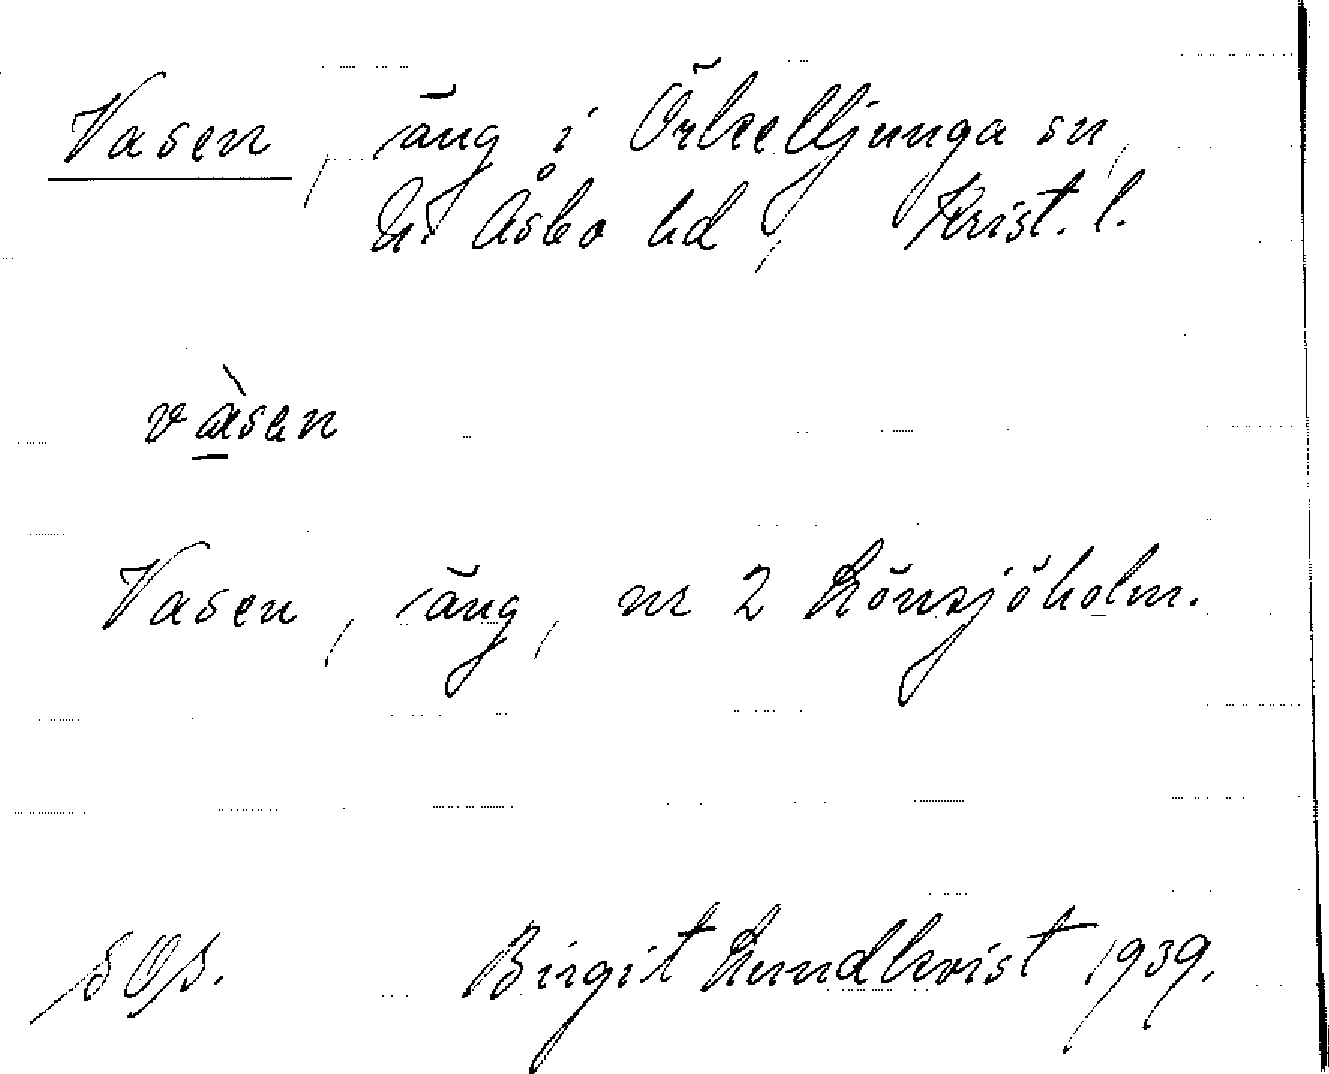 Vasen, äng i Örkelljunga sn,
N. Åsbo hd, Krist. l.
vàsen
Vasen, äng, nr 2 Lönsjöholm.
Birgit Lundkvist 1939.